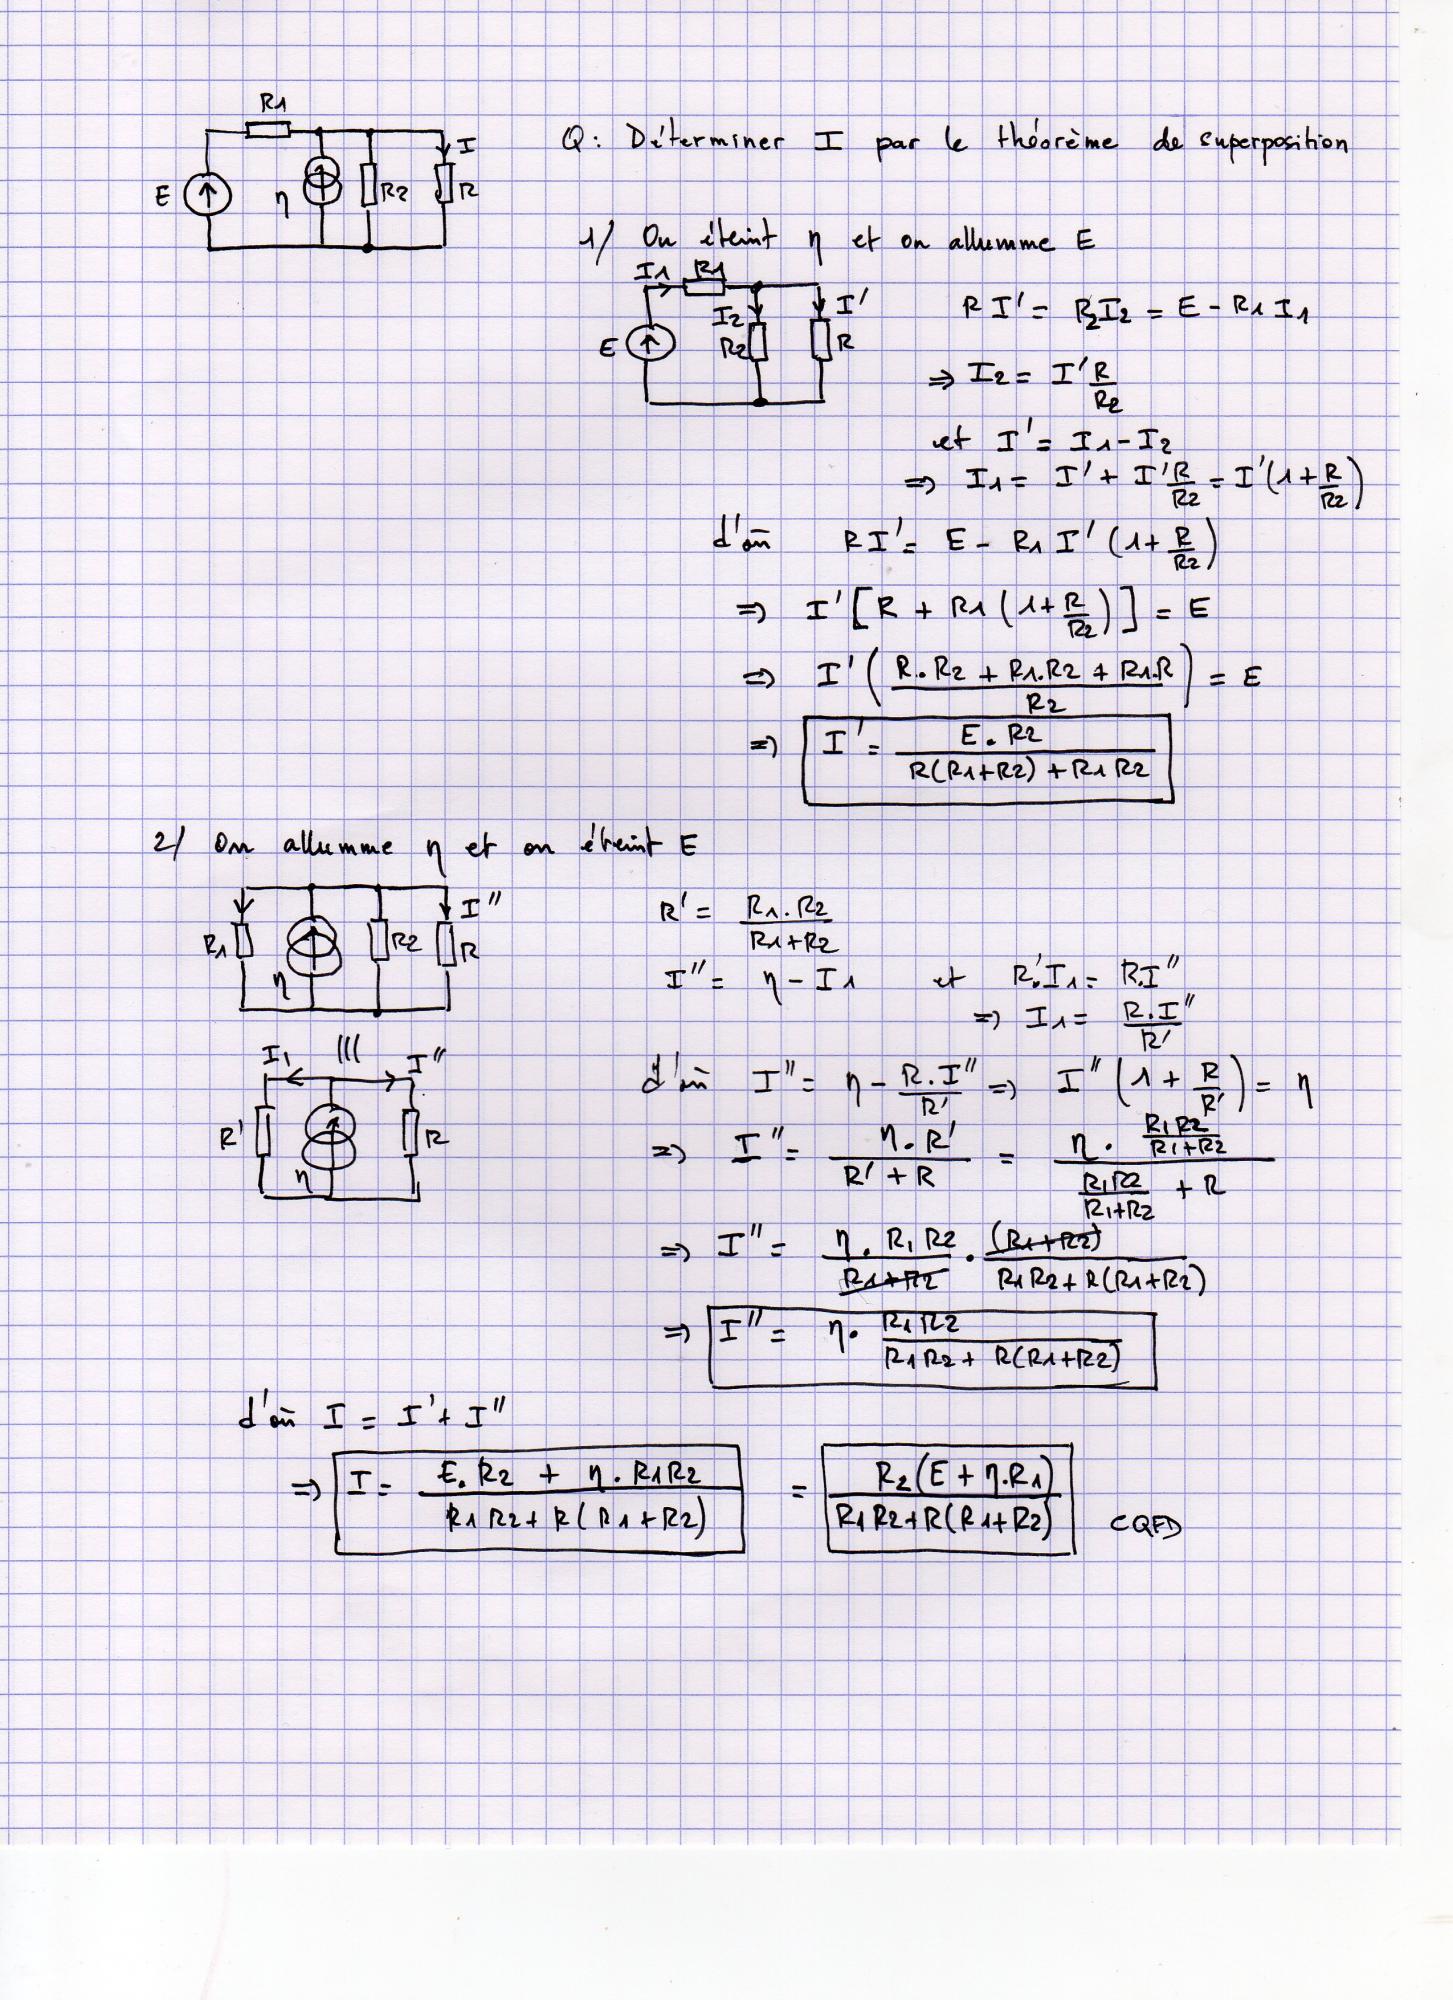 R1
E η R2 R I
Q: Déterminer I par le théorème de superposition
1/ On éteint η et on allumme E
I1 R1
E I2 R2 I' R
R I' = R2 I2 = E - R1 I1
⇒ I2 = I' R/R2
et I' = I1 - I2
⇒ I1 = I' + I' R/R2 = I' (1 + R/R2)
d'où R I' = E - R1 I' (1 + R/R2)
⇒ I' [R + R1 (1 + R/R2)] = E
⇒ I' ((R.R2 + R1.R2 + R1.R)/R2) = E
⇒ I' = E.R2/(R(R1+R2) + R1 R2)
2/ On allumme η et on éteint E
R1 η R2 I'' R
R' = R1.R2/(R1+R2)
I'' = η - I1 et R'.I1 = R.I''
⇒ I1 = R.I''/R'
I1 ||| I''
R' η R
d'où I'' = η - R.I''/R' ⇒ I'' (1 + R/R') = η
⇒ I'' = η.R'/(R' + R) = (η . R1R2/(R1+R2))/(R1R2/(R1+R2) + R)
⇒ I'' = η.R1R2/(R1+R2) . (R1+R2)/(R1R2 + R(R1+R2))
⇒ I'' = η . R1R2/(R1R2 + R(R1+R2))
d'où I = I' + I''
⇒ I = (E.R2 + η.R1R2)/(R1R2 + R(R1+R2)) = R2(E + η.R1)/(R1R2 + R(R1+R2)) CQFD